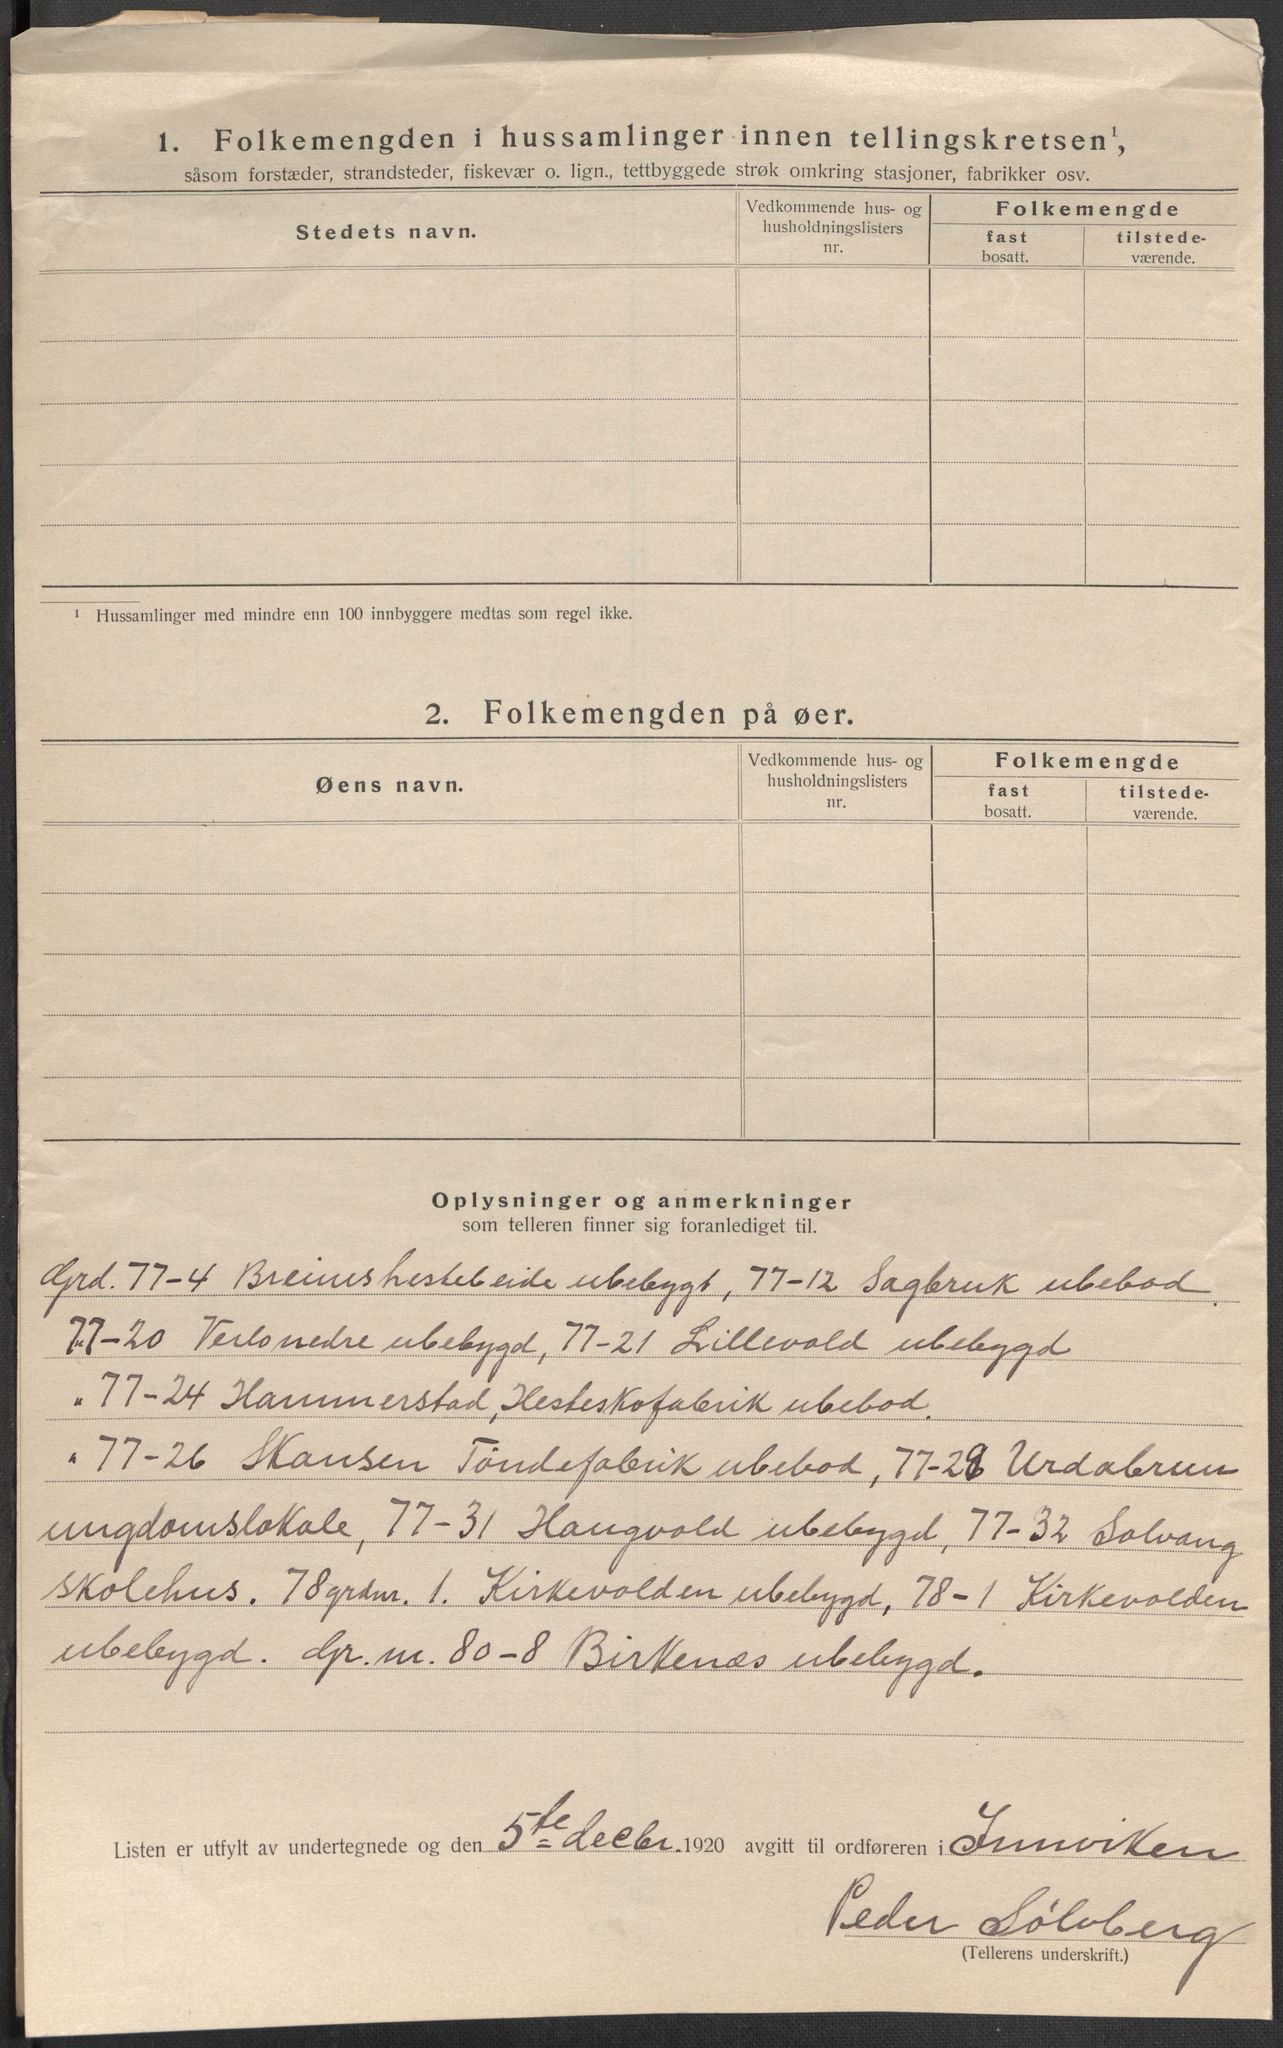 1. Folkemengden i hussamlinger innen tellingskretsen¹,
såsom forstæder, strandsteder, fiskevær o. lign., tettbyggede strøk omkring stasjoner, fabrikker osv.
Stedets navn.
Vedkommende hus- og
husholdningslisters
nr.
Folkemengde
fast
bosatt.
tilstede-
værende.
¹ Hussamlinger med mindre enn 100 innbyggere medtas som regel ikke.
2. Folkemengden på øer.
Øens navn.
Vedkommende hus- og
husholdningslisters
nr.
Folkemengde
fast
bosatt.
tilstede-
værende.
Oplysninger og anmerkninger
som telleren finner sig foranlediget til.
Grd. 77-4 Breimshestebeide ubebygt, 77-12 Sagbruk ubebod.
77-20 ubebygd, 77-21 Lillevold ubebygd
" 77-24 Hammerstad, Hesteskofabrik ubebod.
" 77-26 Skansen Töndefabrik ubebod, 77-28 Urdabrun
ungdomslokale, 77-31 Haugvold ubebygd, 77-32 Solvang
skolehus. 78 grdnr. 1. Kirkevolden ubebygd, 78-1 Kirkevolden
ubebygd. Gr. nr. 80-8 Birkenæs ubebygd.
Listen er utfylt av undertegnede og den 5te decbr. 1920 avgitt til ordføreren i Innviken
Peder Sølvberg
(Tellerens underskrift.)